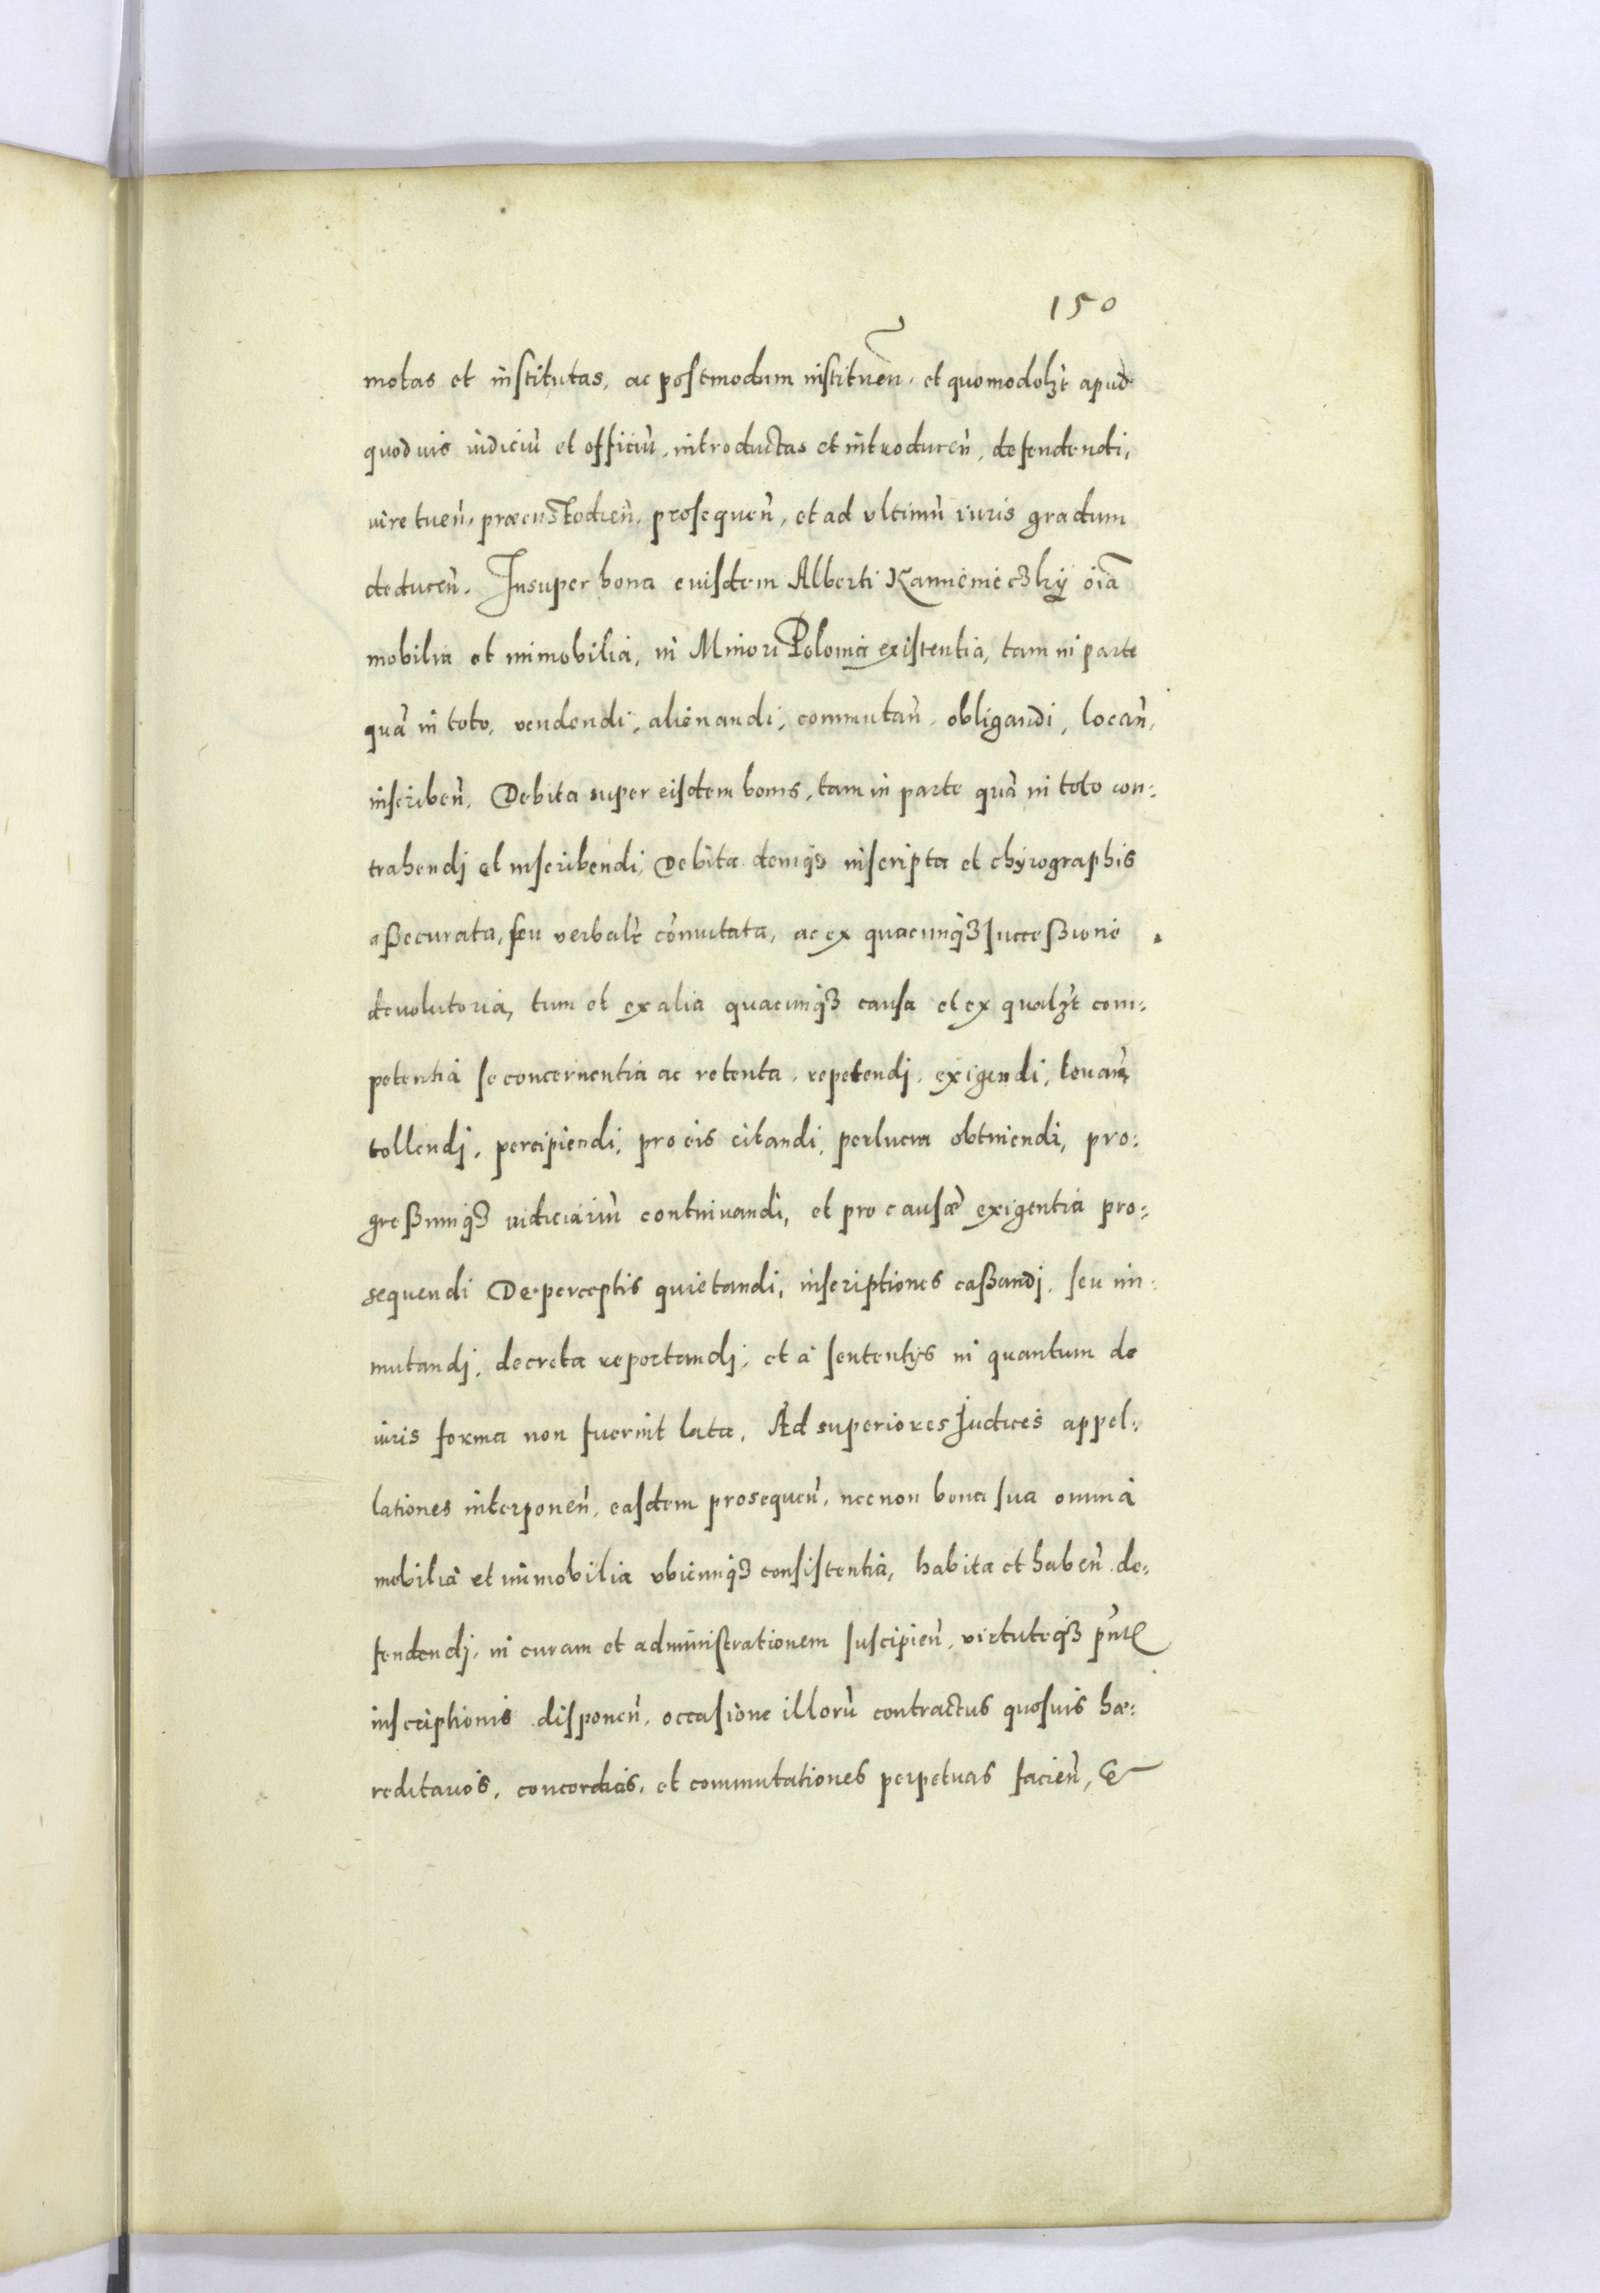 150
motas et institutas, ac postmodum instituen̄. et quomodolꝫt apud
quoduis iudiciū et officiū, introductas et introducen̄, defendendi,
iure tuen̄, præcustodien̄, prosequen̄, et ad vltimū iuris gradum
deducen̄. Insuper bona euisdem Alberti Kamienieczky oīa
mobilia et immobilia, in Minori Polonia existentia, tam in parte
quā in toto, vendendi, alienandi, commutan̄, obligandi, locan̄,
inscriben̄. Debita super eisdem bonis, tam in parte quā in toto con:
trahendj et inscribendi, Debita deniqꝫ inscripta et chyrographis
aßecurata, seu verbalr̄ cōmutata, ac ex quacunqꝫ succeßione
deuolutoria, tum et ex alia quacunqꝫ causa et ex qualꝫt com:
petentia se concernentia ac retenta, repetendj, exigendi, leuan̄,
tollendj, percipiendi, pro eis citandi, perlucra obtinendi, pro:
greßumqꝫ iudiciariū continuandi, et pro causæ exigentia pro:
sequendi De perceptis quietandi, inscriptiones caßandj, seu im:
mutandj, decreta reportandj, et à sententijs in quantum de
iuris forma non fuerint latæ, Ad superiores Judices appel:
lationes interponen̄, easdem prosequen̄, necnon bona sua omnia
mobilia et immobilia vbicunqꝫ consistentia, habita et haben̄ de:
fendendj, in curam et administrationem suscipien̄, virtuteqꝫ pn̄tis
inscriptionis disponen̄, occasione illorū contractus quosuis hæ:
reditarios, concordias, et commutationes perpetuas facien̄, &